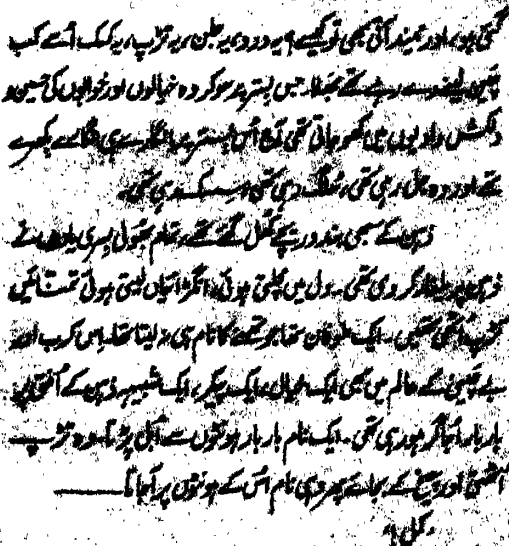 گئی ہو، اور نیند آتی بھی تو کیسے؟ یہ درد، یہ جلن، یہ تڑپ، یہ کسک اُسے کب
چین لینے دے رہے تھے بھلا۔ جس بستر پر سو کر وہ خیالوں اور خوابوں کی حسین و
دلکش وادیوں میں کھو جاتی تھی آج اُس بستر پر انگارے ہی انگارے بکھرے
تھے اور وہ جل رہی تھی، سُلگ رہی تھی، سسک رہی تھی۔
ذہن کے سبھی بند دریچے کھل گئے تھے، تمام بھولی بسری یادوں نے
ذہن پر یلغار کر دی تھی۔ دل میں مچلتی ہوئی، انگڑائیاں لیتی ہوئی تمنائیں
تڑپ اُٹھی تھیں۔ ایک طوفان تھا جو تھمنے کا نام ہی نہ لیتا تھا۔ اس کرب اور
بے چینی کے عالم میں بھی ایک خیال، ایک پیکر، ایک شبیہہ ذہن کے اُفق پر
بار بار اُجاگر ہو رہی تھی۔ ایک نام بار بار ہونٹوں سے اُبل پڑتا۔ وہ تڑپ
اُٹھتی اور چیخ کے بجائے پھر وہی نام اُس کے ہونٹوں پر آجاتا۔